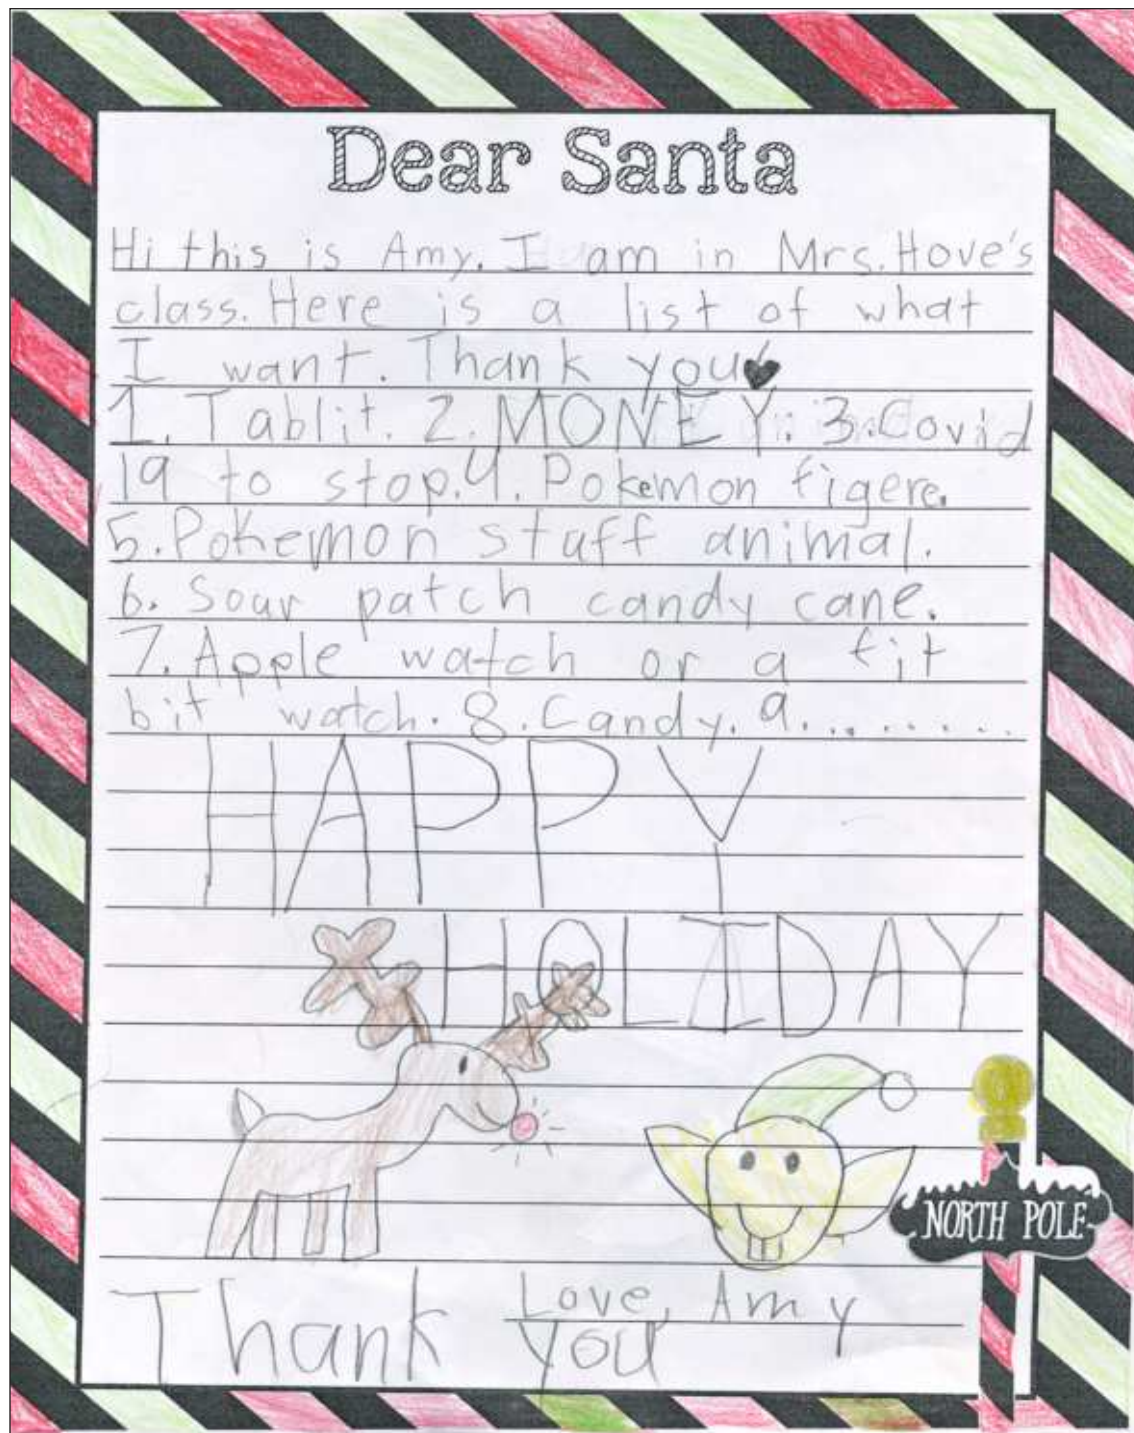 Dear Santa
Hi this is Amy. I am in Mrs. Hove's
class. Here is a list of what
I want. Thank you
1. Tablit. 2. MONEY. 3. Covid
19 to stop. 4. Pokemon figere.
5. Pokemon staff animal.
6. Sour patch candy cane.
7. Apple watch or a fit
bit watch. 8. Candy. 9. ........
HAPPY
HOLIDAY
NORTH POLE
Love, Amy
Thank you